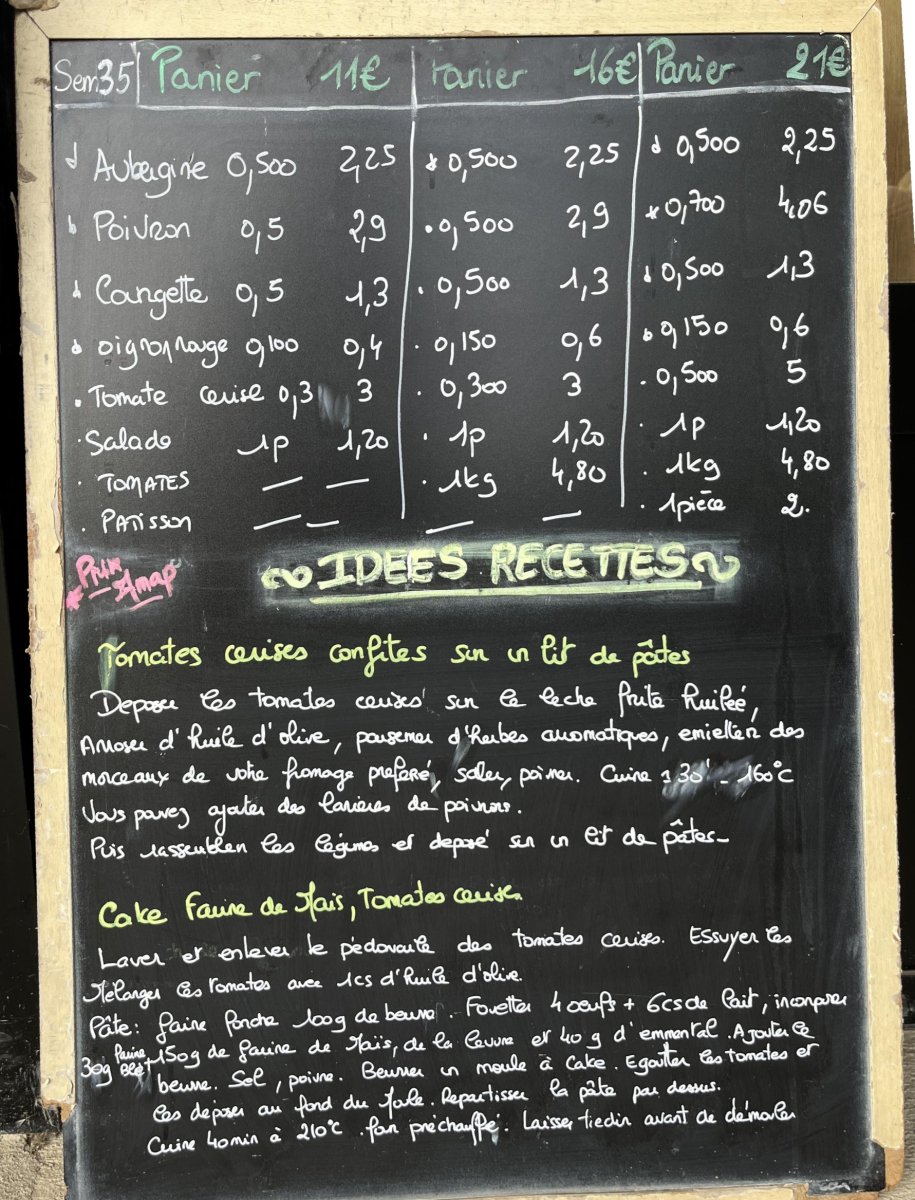 Sem 35 Panier 11€ Panier 16€ Panier 21€
Aubergine 0,500 2,25 0,500 2,25 0,500 2,25
Poivron 0,5 2,9 0,500 2,9 0,700 4,06
Courgette 0,5 1,3 0,500 1,3 0,500 1,3
oignon rouge 0,100 0,4 0,150 0,6 0,150 0,6
Tomate cerise 0,3 3 0,300 3 0,500 5
Salade 1p 1,20 1p 1,20 1p 1,20
TOMATES — — 1kg 4,80 1kg 4,80
PATISSON — — — — 1pièce 2.
Prix
Amap
~ IDEES RECETTES ~
Tomates cerises confites sur un lit de pâtes
Deposer les tomates cerises sur la leche frite huilée,
Arroser d'huile d'olive, parsemer d'herbes aromatiques, emietter des
morceaux de votre fromage preferé, saler, poivrer. Cuire 1 30' - 160°c
Vous pouvez ajouter des lanieres de poivrons.
Puis rassembler les légumes et deposé sur un lit de pâtes-
Cake Farine de Maïs, Tomates cerise.
Laver et enlever le pédoncule des tomates cerises. Essuyer les
Mélanger les tomates avec 1cs d'huile d'olive.
Pâte: faire fondre 100g de beurre. Fouetter 4 oeufs + 6cs de lait, incorporer
30g farine Blé + 150g de farine de Maïs, de la levure et 40 g d'emmental. Ajouter le
beurre. Sel, poivre. Beurrer un moule à Cake. Egoutter les tomates et
les deposer au fond du Moule. Repartisser la pâte par dessus.
Cuire 40min à 210°c four préchauffé. Laisser tiedir avant de démouler